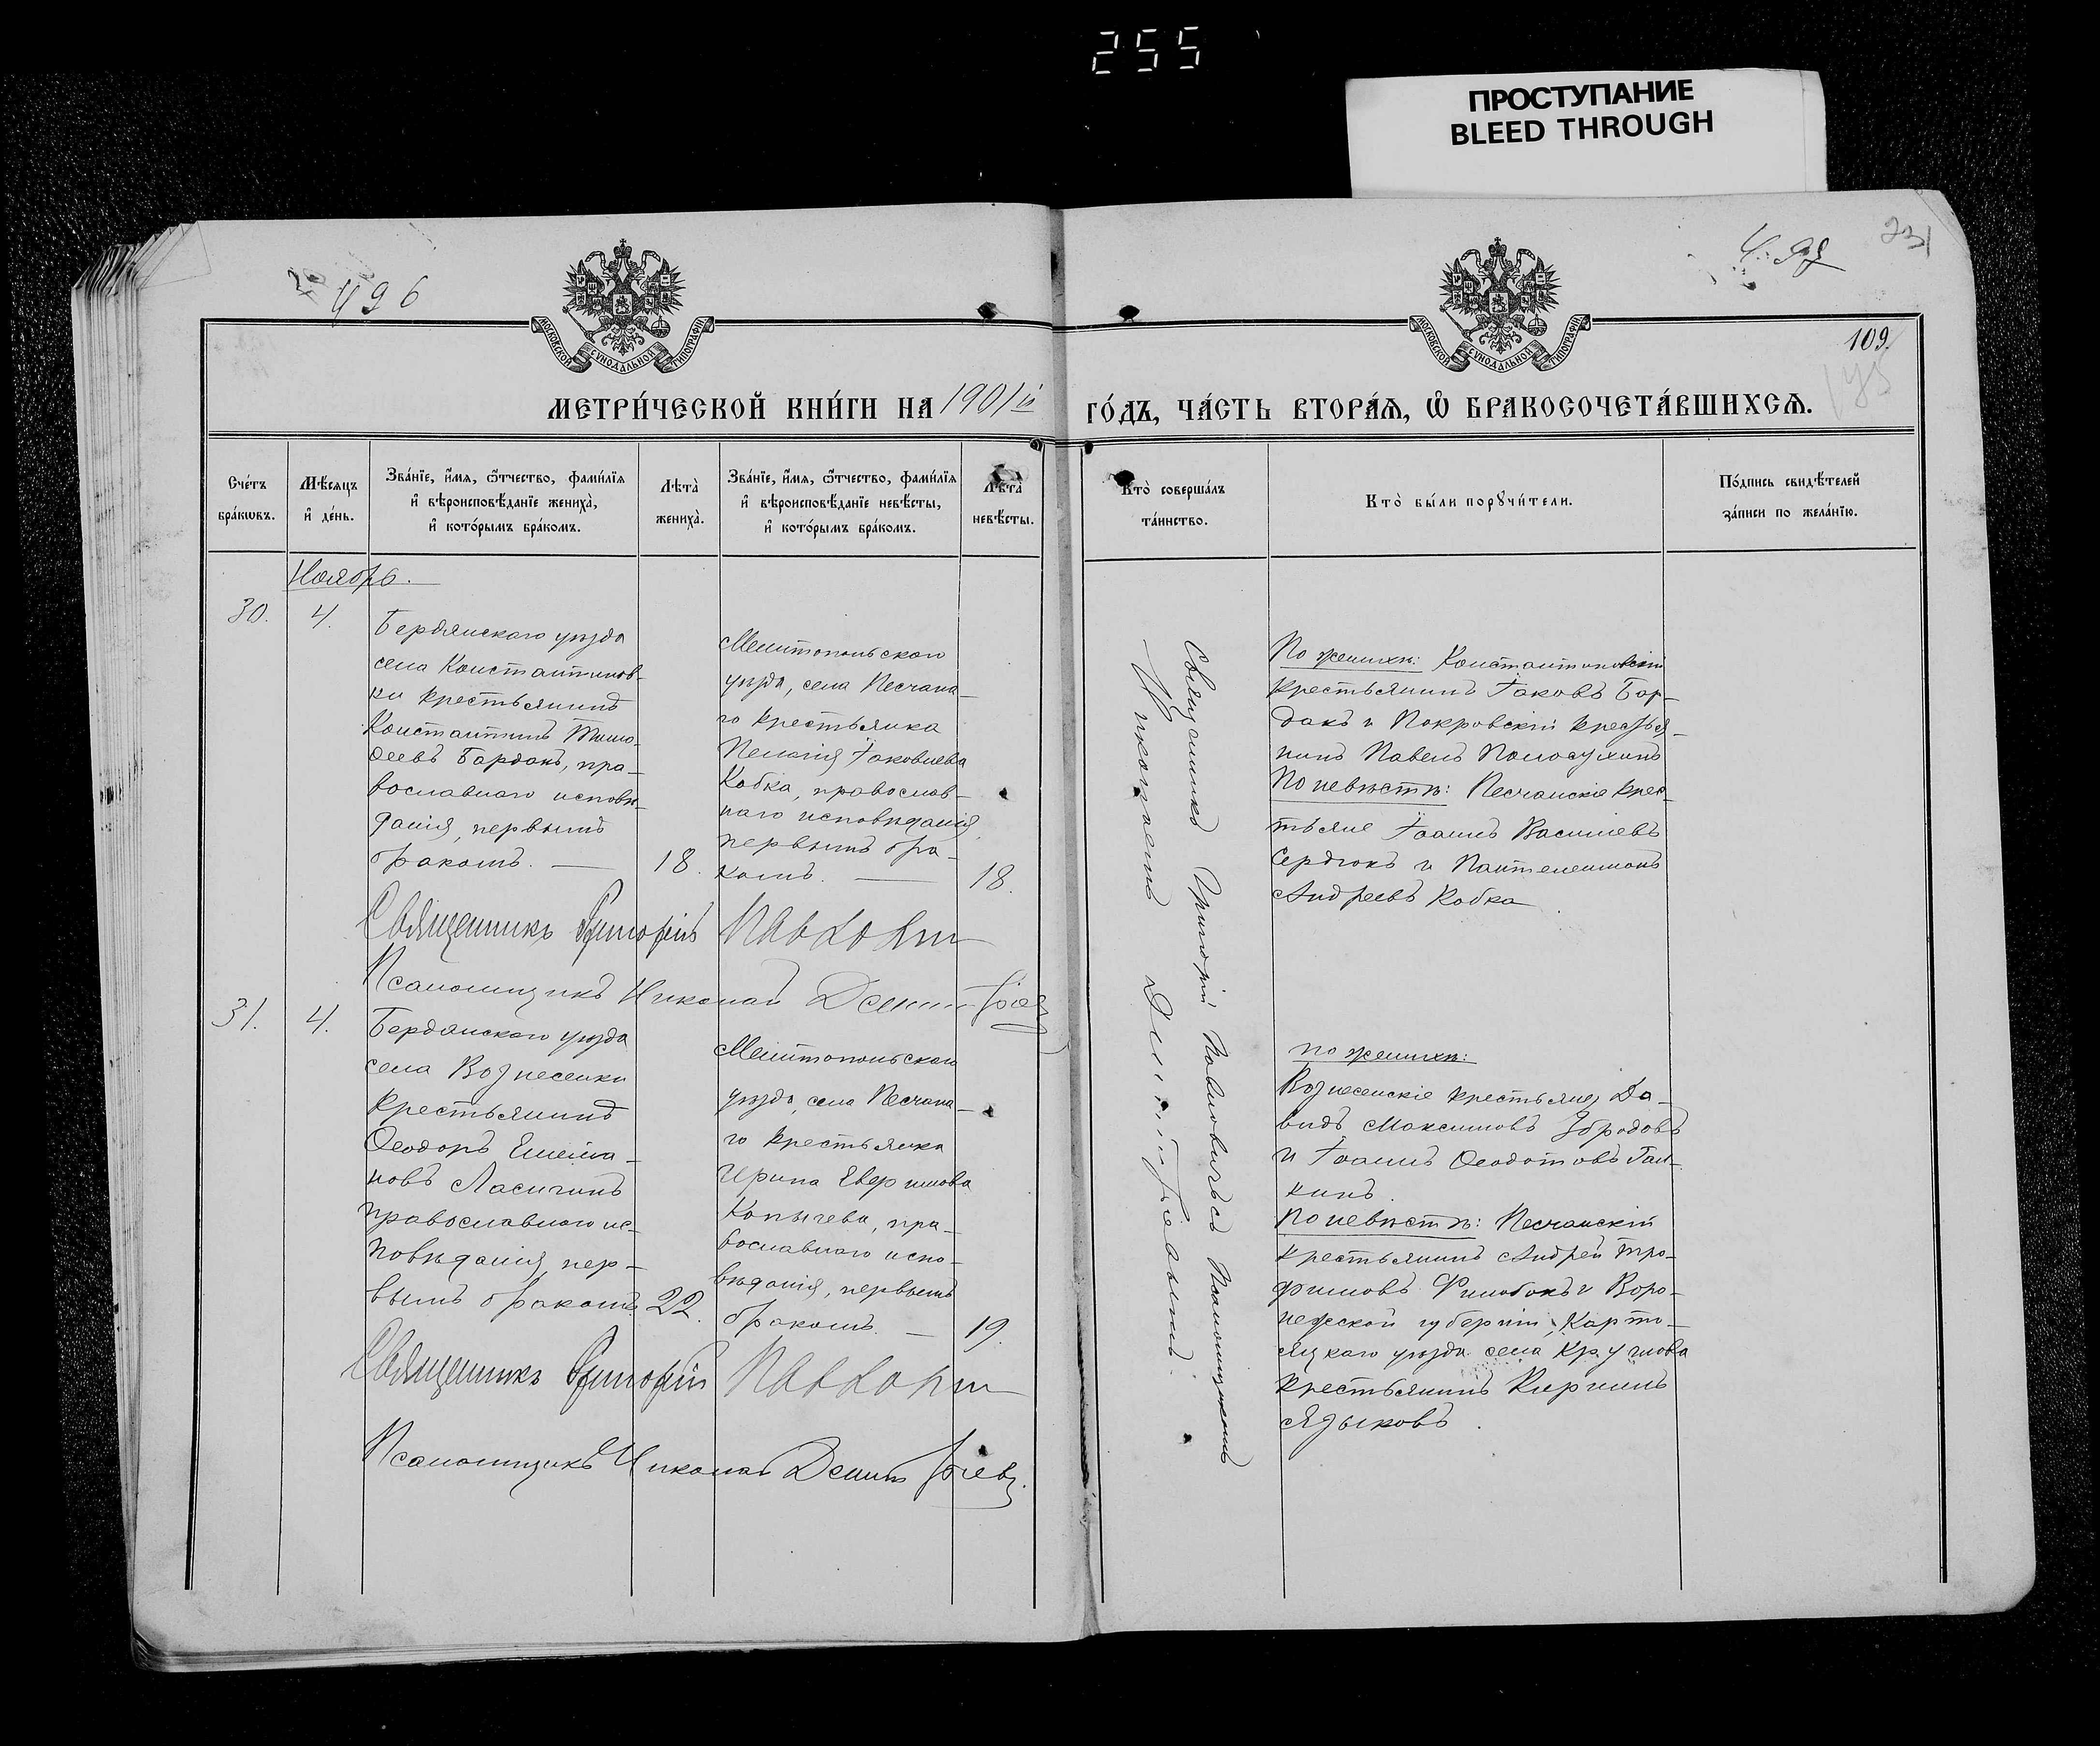 255
ПРОСТУПАНИЕ
BLEED THROUGH
496
231
109.
МОСКОВСКОЙ СѴНОДАЛЬНОЙ ТИПОГРАФІИ
МОСКОВСКОЙ СѴНОДАЛЬНОЙ ТИПОГРАФІИ
МЕТРИ́ЧЕСКОЙ КНИ́ГИ НА 1901й ГО́ДЪ, ЧА́СТЬ ВТОРА́Я, Ѽ БРАКОСОЧЕТА́ВШИХСЯ.
Сче́тъ
бра́кѡвъ.
Мѣ́сяцъ
и҆ де́нь.
Зва́нїе, и҆́мя, ѻ҆́тчество, фами́лїя
и҆ вѣроисповѣ́данїе жениха̀,
и҆ кото́рымъ бра́комъ.
Лѣта̀
жениха̀.
Зва́нїе, и҆́мя, ѻ҆́тчество, фами́лїя
и҆ вѣроисповѣ́данїе невѣ́сты,
и҆ кото́рымъ бра́комъ.
Лѣта̀
невѣ́сты.
Кто̀ соверша́лъ
та́инство.
Кто̀ бы́ли порꙋчи́тели.
По́дпись свидѣ́телей
за́писи по жела́нїю.
Ноябрь.
30.
4.
Бердянскаго уѣзда
села Константинов-
ки крестьянинъ
Константинъ Тимо-
ѳеевъ Бардакъ, пра-
вославнаго исповѣ-
данія, первымъ
бракомъ. —
18.
Мелитопольскаго
уѣзда, села Песчана-
го крестьянка
Пелагія Іаковлева
Кобка, православ-
наго исповѣданія,
первымъ бра-
комъ. —
18.
Священникъ Григорій Павловичъ Псаломщикомъ
Николаемъ Димитріевымъ.
По женихѣ: Константиновскій
крестьянинъ Іаковъ Бар-
дакъ и Покровскій крестья-
нинъ Павелъ Полосухинъ
По невѣстѣ: Песчанскіе крес-
тьяне Іоаннъ Василіевъ
Сердюкъ и Пантелеимонъ
Андреевъ Кобка.
Священникъ Григорій
Псаломщикъ Николай Димитріевъ
31.
4.
Бердянскаго уѣзда
села Вознесенки
крестьянинъ
Ѳеодоръ Емелiа-
новъ Ласигинъ
православнаго ис-
повѣданія, пер-
вымъ бракомъ
22.
Мелитопольскаго
уѣзда, села Песчана-
го крестьянка
Ирина Евфимова
Копычева, пра-
вославнаго испо-
вѣданія, первымъ
бракомъ. —
19.
по женихѣ:
Вознесенскіе крестьяне Да-
видъ Максимовъ Збродовъ
и Іоаннъ Ѳеодотовъ Гал-
кинъ.
По невѣстѣ: Песчанскій
крестьянинъ Андрей Тро-
фимовъ и Воро-
нежской губерніи,
уѣзда села
крестьянинъ Кириллъ
Языковъ.
Священникъ Григорій
Псаломщикъ Николай Димитріевъ.